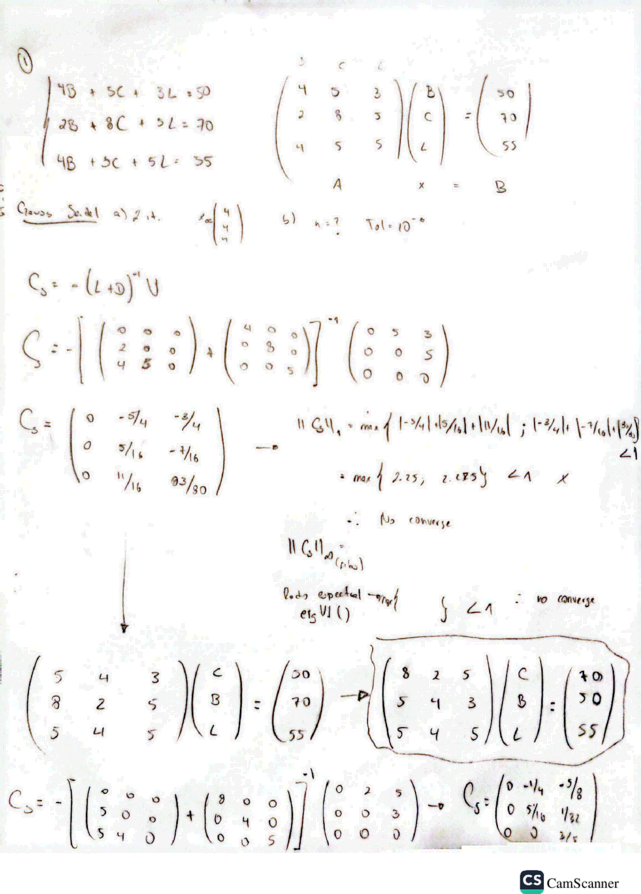 ①
4B + 5C + 3L = 50
2B + 8C + 5L = 70
4B + 5C + 5L = 55
C L
( 4 5 3 ; 2 8 5 ; 4 5 5 ) ( B ; C ; L ) = ( 50 ; 70 ; 55 )
A x = B
Gauss Seidel a) 2 it. x₀ = ( 4 ; 4 ; 4 ) b) n = ? Tol = 10
Cs = -(L+D)⁻¹ U
Cs = -[ ( 0 0 0 ; 2 0 0 ; 4 5 0 ) + ( 4 0 0 ; 0 8 0 ; 0 0 5 ) ]⁻¹ ( 0 5 3 ; 0 0 5 ; 0 0 0 )
Cs = ( 0 -5/4 -3/4 ; 0 5/16 -7/16 ; 0 11/16 83/80 ) → ||Cs||₁ = max { |-5/4|+|5/16|+|11/16| ; |-3/4|+|-7/16|+|83/80| } < 1
= max { 2.25, } < 1 x
∴ No converge
||Cs||∞ =
Radio espectral → max { } < 1 ∴ no converge
eigVl ()
( 5 4 3 ; 8 2 5 ; 5 4 5 ) ( C ; B ; L ) = ( 50 ; 70 ; 55 ) → ( 8 2 5 ; 5 4 3 ; 5 4 5 ) ( C ; B ; L ) = ( 70 ; 50 ; 55 )
Cs = -[ ( 0 0 0 ; 5 0 0 ; 5 4 0 ) + ( 8 0 0 ; 0 4 0 ; 0 0 5 ) ]⁻¹ ( 0 2 5 ; 0 0 3 ; 0 0 0 ) → Cs = ( 0 -1/4 -5/8 ; 0 5/16 1/32 ; 0 0 3/5 )
CS CamScanner